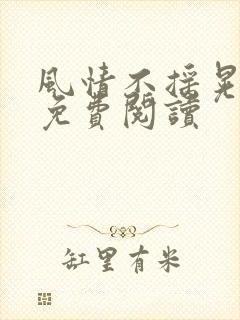 風情不搖晃
免費閱讀
缸里有米